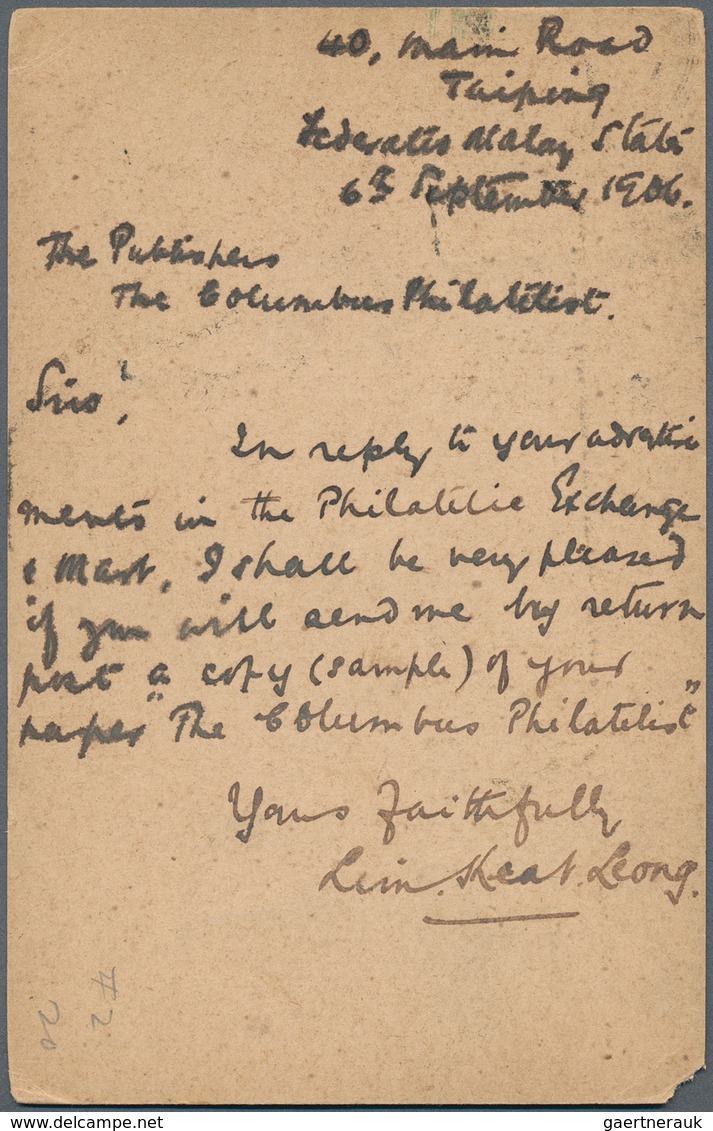 40, Main Road
Taiping
Federated Malay States
6th September 1906.
The Publishers
The Columbus Philatelist.
Sirs,
In reply to your advertise
ments in the Philatelic Exchange
& Mart, I shall be very pleased
if you will send me by return
post a copy (sample) of your
paper "The Columbus Philatelist"
Yours faithfully
Lim Keat Leong.
#2
20
delcampe.net
gaertnerauk